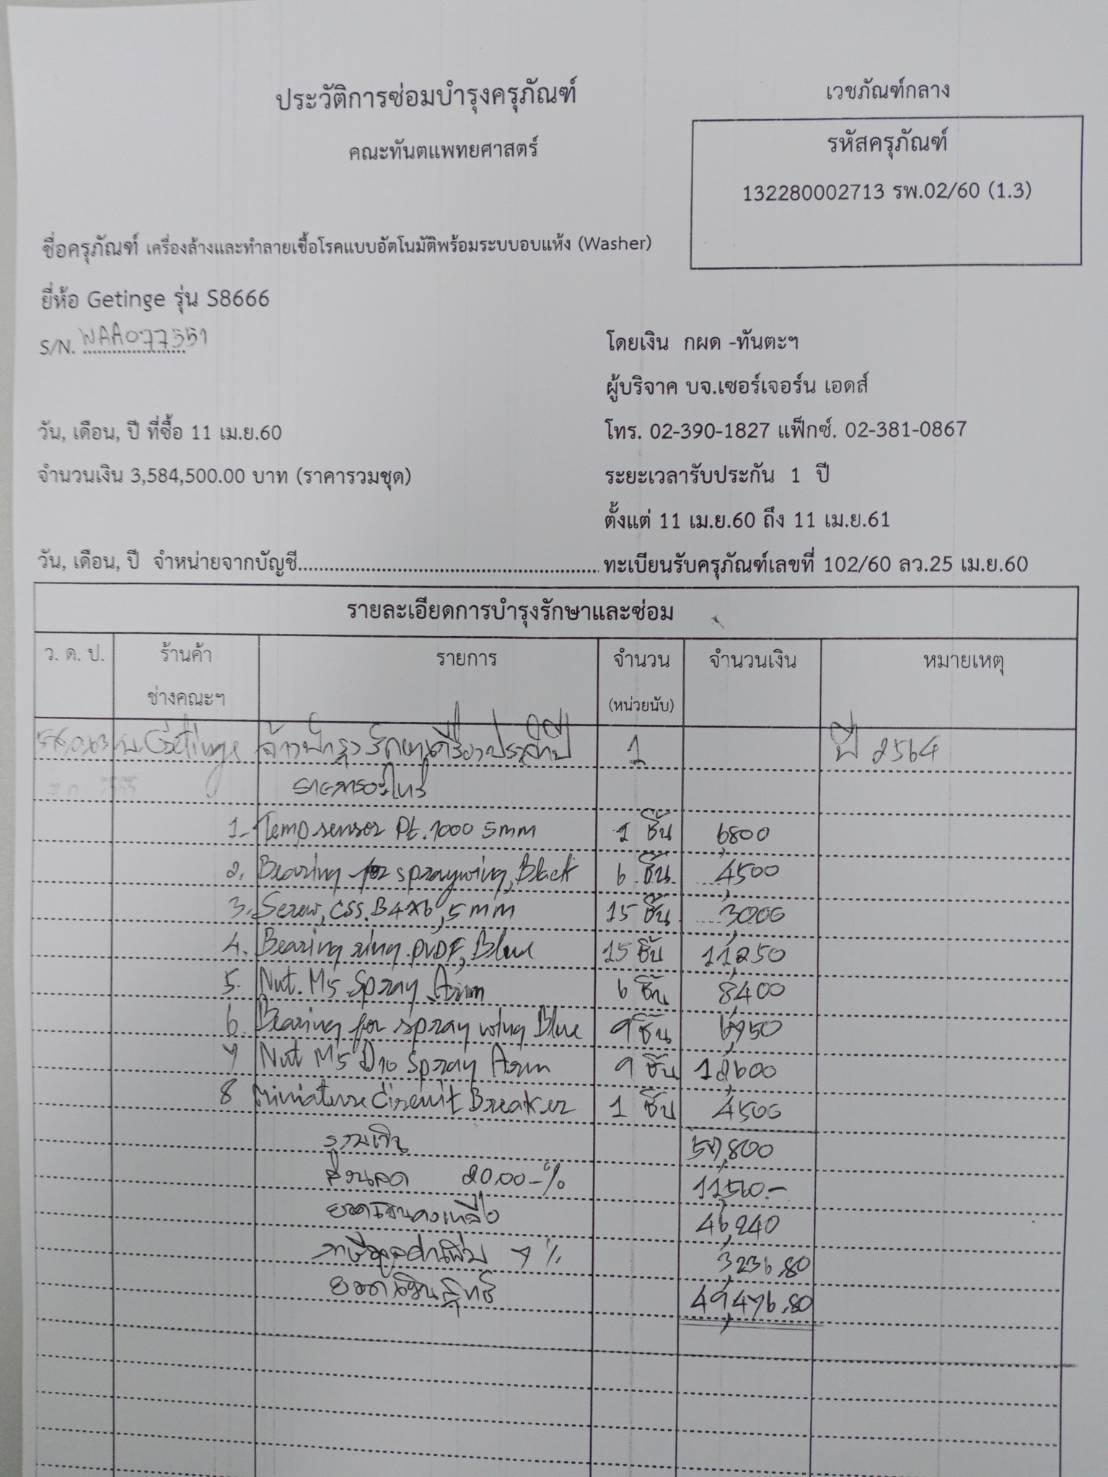 ประวัติการซ่อมบำรุงครุภัณฑ์
เวชภัณฑ์กลาง
คณะทันตแพทยศาสตร์
รหัสครุภัณฑ์
132280002713 รพ.02/60 (1.3)
ชื่อครุภัณฑ์ เครื่องล้างและทำลายเชื้อโรคแบบอัตโนมัติพร้อมระบบอบแห้ง (Washer)
ยี่ห้อ Getinge รุ่น S8666
S/N. WAA077551
โดยเงิน กผด -ทันตะฯ
ผู้บริจาค บจ.เซอร์เจอร์น เอดส์
วัน, เดือน, ปี ที่ซื้อ 11 เม.ย.60
โทร. 02-390-1827 แฟ็กซ์. 02-381-0867
จำนวนเงิน 3,584,500.00 บาท (ราคารวมชุด)
ระยะเวลารับประกัน 1 ปี
ตั้งแต่ 11 เม.ย.60 ถึง 11 เม.ย.61
วัน, เดือน, ปี จำหน่ายจากบัญชี........................................................... ทะเบียนรับครุภัณฑ์เลขที่ 102/60 ลว.25 เม.ย.60
รายละเอียดการบำรุงรักษาและซ่อม
ว. ด. ป. ร้านค้า รายการ จำนวน จำนวนเงิน หมายเหตุ
ช่างคณะฯ (หน่วยนับ)
Getinge จ้างบำรุงรักษาเครื่องประจำปี 1 ปี 2564
รายการอะไหล่
1. Temp sensor Pt.1000 5mm 1 ชิ้น 6,800
2. Bearing for spraywing, Black 6 ชิ้น 4,500
3. Screw, CSS. B4x6,5 mm 15 ชิ้น 3,000
4. Bearing ring. PVDF, Blue 15 ชิ้น 11,250
5. Nut. M5 Spray Arm 6 ชิ้น 8,400
6. Bearing for spray wing Blue 9 ชิ้น 6,750
7 Nut M5 D10 Spray Arm 9 ชิ้น 12,600
8 Miniature Circuit Breaker 1 ชิ้น 4,500
รวมเงิน 57,800
ส่วนลด 20.00-% 11,560.-
ยอดเงินคงเหลือ 46,240
ภาษีมูลค่าเพิ่ม 7% 3,236.80
ยอดเงินสุทธิ 49,476.80